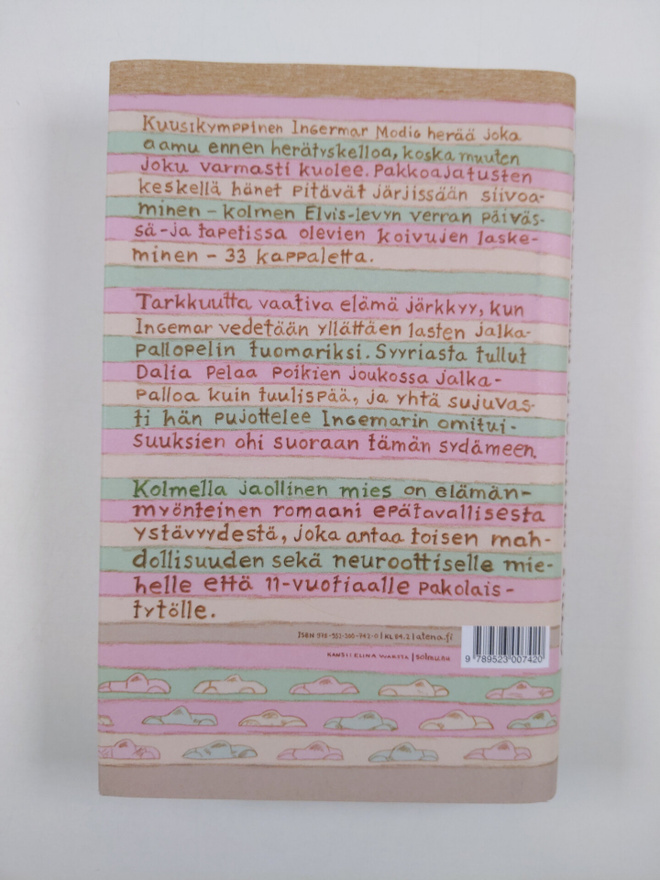 Kuusikymppinen Ingermar Modig herää joka
aamu ennen herätyskelloa, koska muuten
joku varmasti kuolee. Pakkoajatusten
keskellä hänet pitävät järjissään siivoa-
minen – kolmen Elvis-levyn verran päiväs-
sä – ja tapetissa olevien koivujen laske-
minen – 33 kappaletta.
Tarkkuutta vaativa elämä järkkyy, kun
Ingemar vedetään yllättäen lasten jalka-
pallopelin tuomariksi. Syyriasta tullut
Dalia pelaa poikien joukossa jalka-
palloa kuin tuulispää, ja yhtä sujuvas-
ti hän pujottelee Ingemarin omitui-
suuksien ohi suoraan tämän sydämeen.
Kolmella jaollinen mies on elämän-
myönteinen romaani epätavallisesta
ystävyydestä, joka antaa toisen mah-
dollisuuden sekä neuroottiselle mie-
helle että 11-vuotiaalle pakolais-
tytölle.
ISBN 978-952-300-742-0 | KL 84.2 | atena.fi
KANSI ELINA WAROSTA |
9 789523 007420